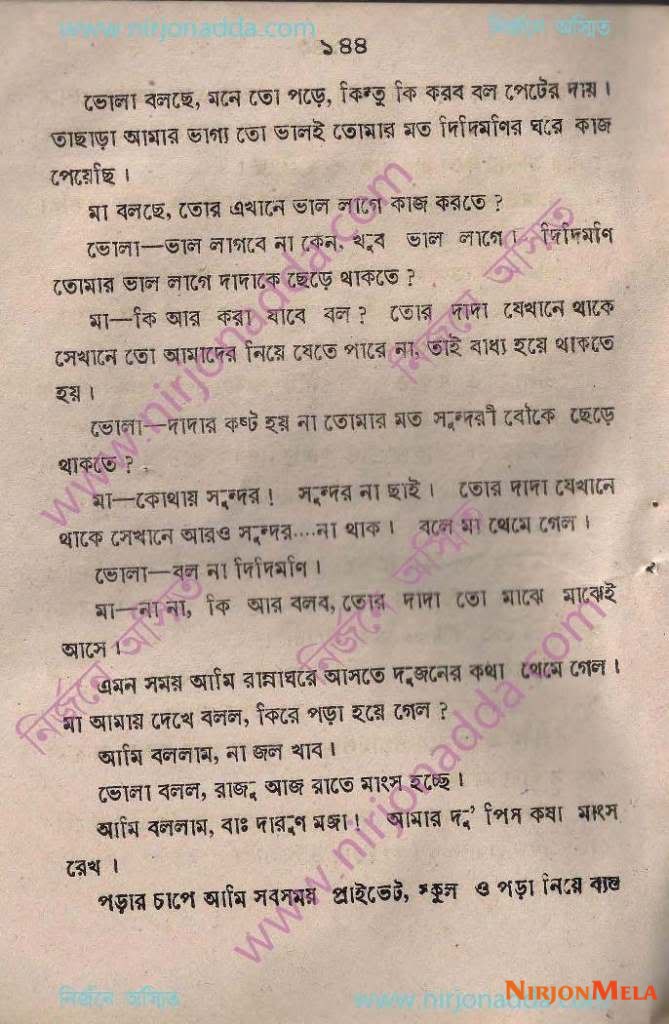 www.nirjonadda.com নির্জনে অস্মিত
১৪৪
ভোলা বলছে, মনে তো পড়ে, কিন্তু কি করব বল পেটের দায়।
তাছাড়া আমার ভাগ্য তো ভালই তোমার মত দিদিমণির ঘরে কাজ
পেয়েছি।
মা বলছে, তোর এখানে ভাল লাগে কাজ করতে ?
ভোলা—ভাল লাগবে না কেন, খুব ভাল লাগে। দিদিমণি
তোমার ভাল লাগে দাদাকে ছেড়ে থাকতে ?
মা—কি আর করা যাবে বল ? তোর দাদা যেখানে থাকে
সেখানে তো আমাদের নিয়ে যেতে পারে না, তাই বাধ্য হয়ে থাকতে
হয়।
ভোলা—দাদার কষ্ট হয় না তোমার মত সুন্দরী বৌকে ছেড়ে
থাকতে ?
মা—কোথায় সুন্দর! সুন্দর না ছাই। তোর দাদা যেখানে
থাকে সেখানে আরও সুন্দর....না থাক। বলে মা থেমে গেল।
ভোলা—বল না দিদিমণি।
মা—না না, কি আর বলব, তোর দাদা তো মাঝে মাঝেই
আসে।
এমন সময় আমি রান্নাঘরে আসতে দুজনের কথা থেমে গেল।
মা আমায় দেখে বলল, কিরে পড়া হয়ে গেল ?
আমি বললাম, না জল খাব।
ভোলা বলল, রাজু আজ রাতে মাংস হচ্ছে।
আমি বললাম, বাঃ দারুণ মজা! আমার দু' পিস কষা মাংস
রেখ।
পড়ার চাপে আমি সবসময় প্রাইভেট, স্কুল ও পড়া নিয়ে ব্যস্ত
www.nirjonadda.com
নির্জনে অস্মিত
www.nirjonadda.com
নির্জনে অস্মিত
নির্জনে অস্মিত
www.nirjonadda.com
নির্জনে অস্মিত www.nirjonadda.com
NIRJONMELA